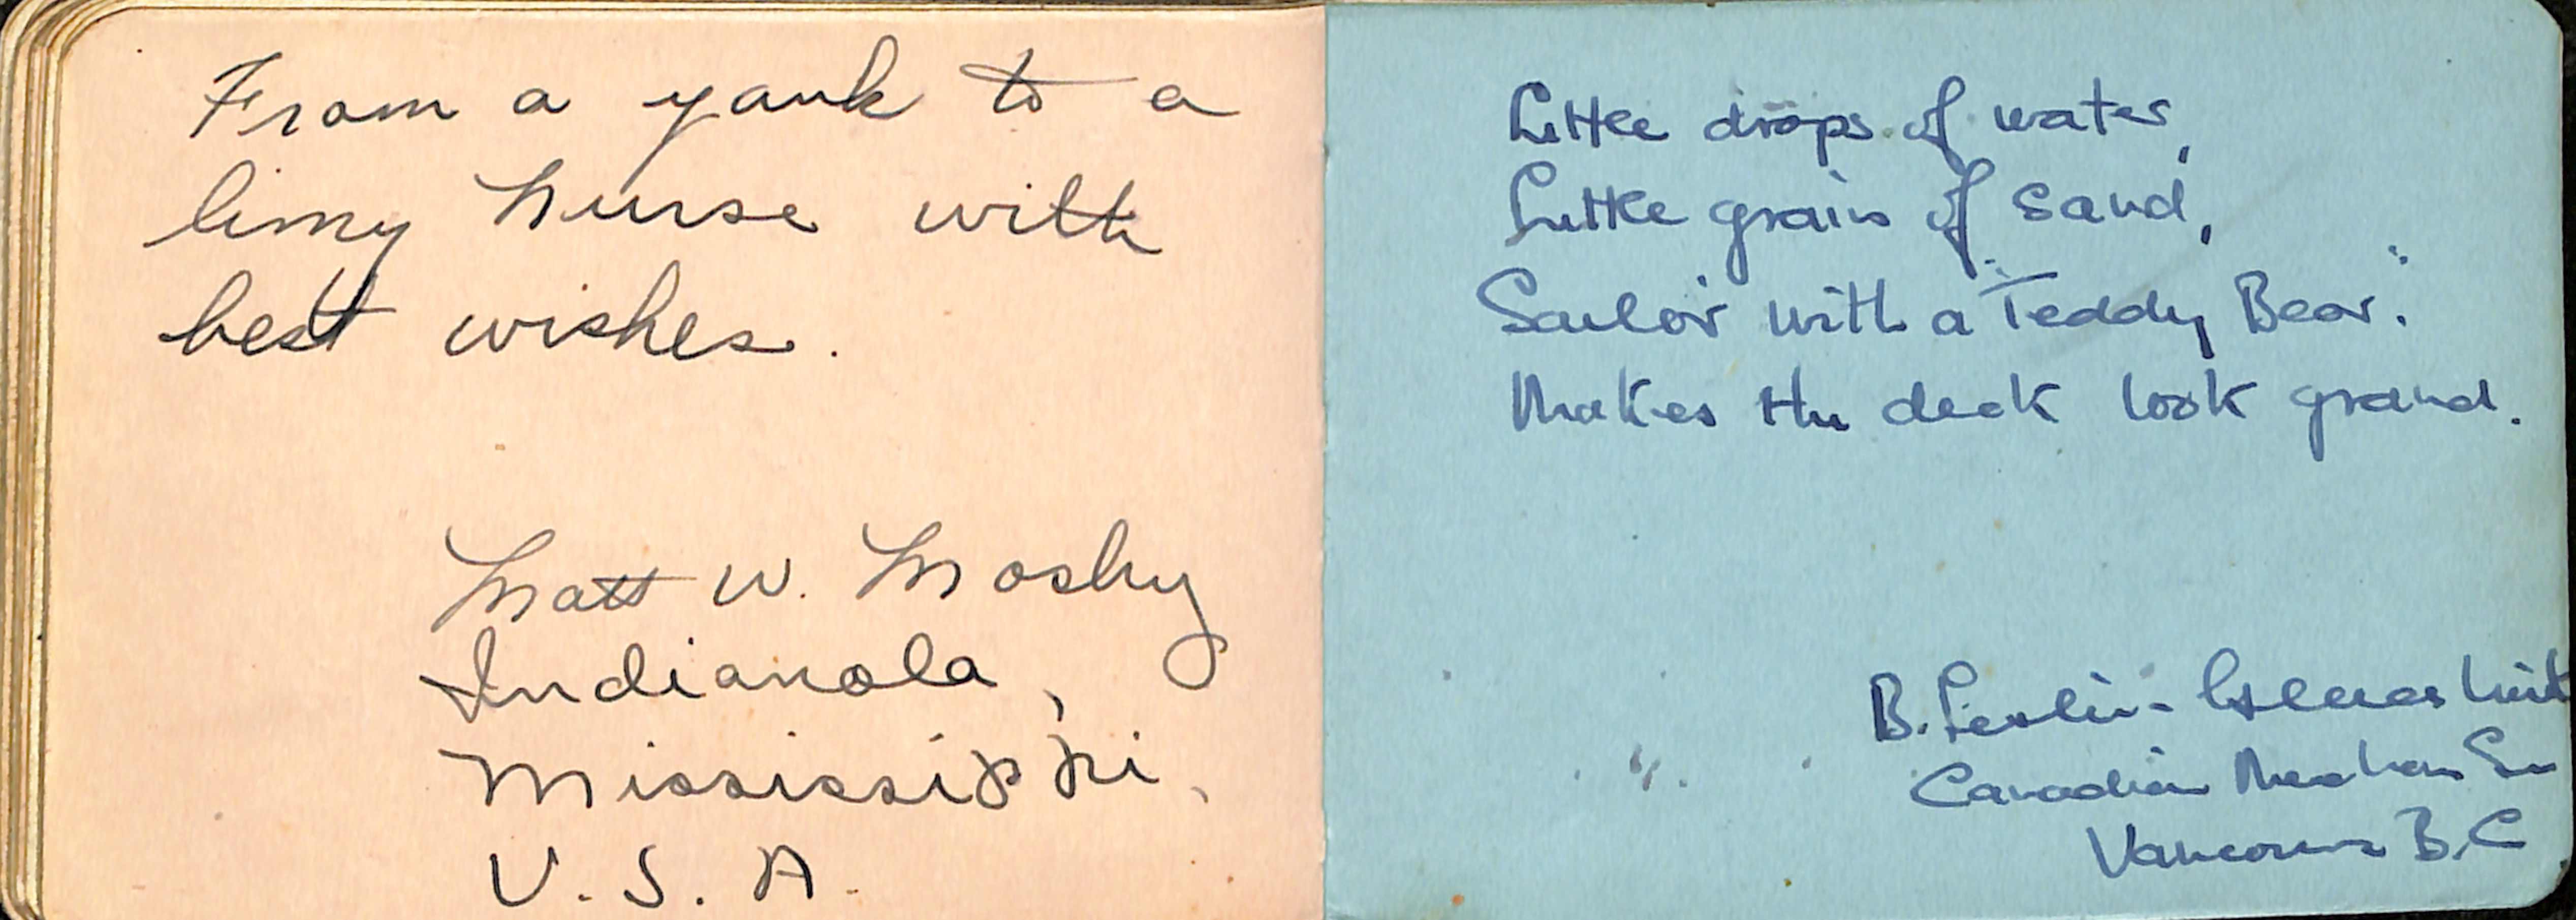 From a yank to a
limy nurse with
best wishes.
Matt W. Mosby
Indianola,
Mississippi,
U.S.A.
Little drops of water,
Little grains of sand,
Sailor with a "Teddy Bear."
Makes the deck look grand.
B. Leslie-
Canadian
Vancouver B.C